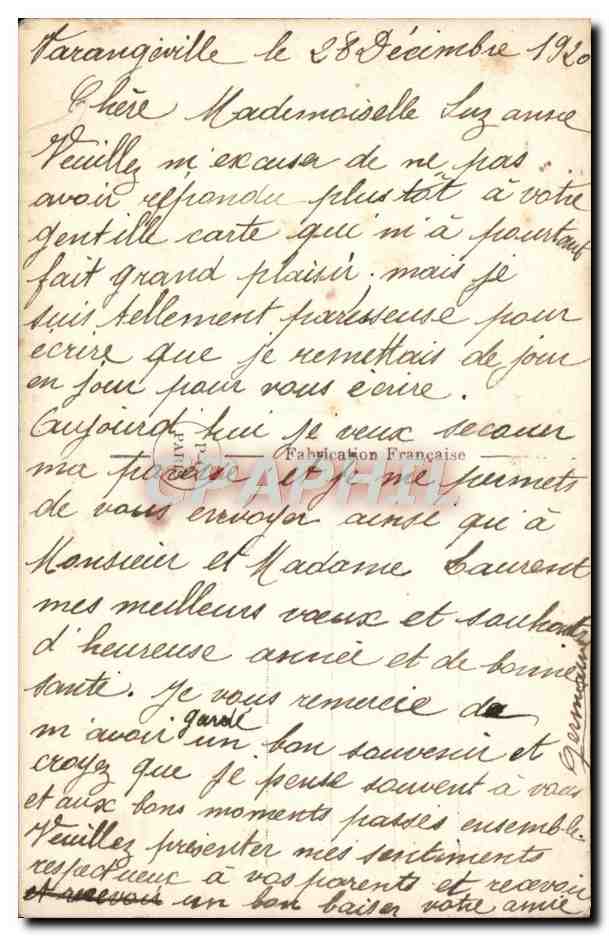 Varangéville le 28 Décimbre 1920
Chère Mademoiselle Suzanne
Veuillez m'excuser de ne pas
avoir répondu plus tôt à votre
gentille carte qui m'à pourtant
fait grand plaisir. mais je
suis tellement paresseuse pour
écrire que je remettais de jour
en jour pour vous écrire.
Aujourd'hui je veux secouer
Fabrication Française
ma paresse et je me permets
CPAPHIL
de vous envoyer ainsi qu'à
Monsieur et Madame Laurent
mes meilleurs vœux et souhaits
d'heureuse année et de bonne
santé. Je vous remercie de
m'avoir gardé un bon souvenir et
croyez que je pense souvent à vous
et aux bons moments passés ensemble.
Veuillez présenter mes sentiments
respectueux à vos parents et recevoir
et recevoir un bon baiser votre amie
Germaine